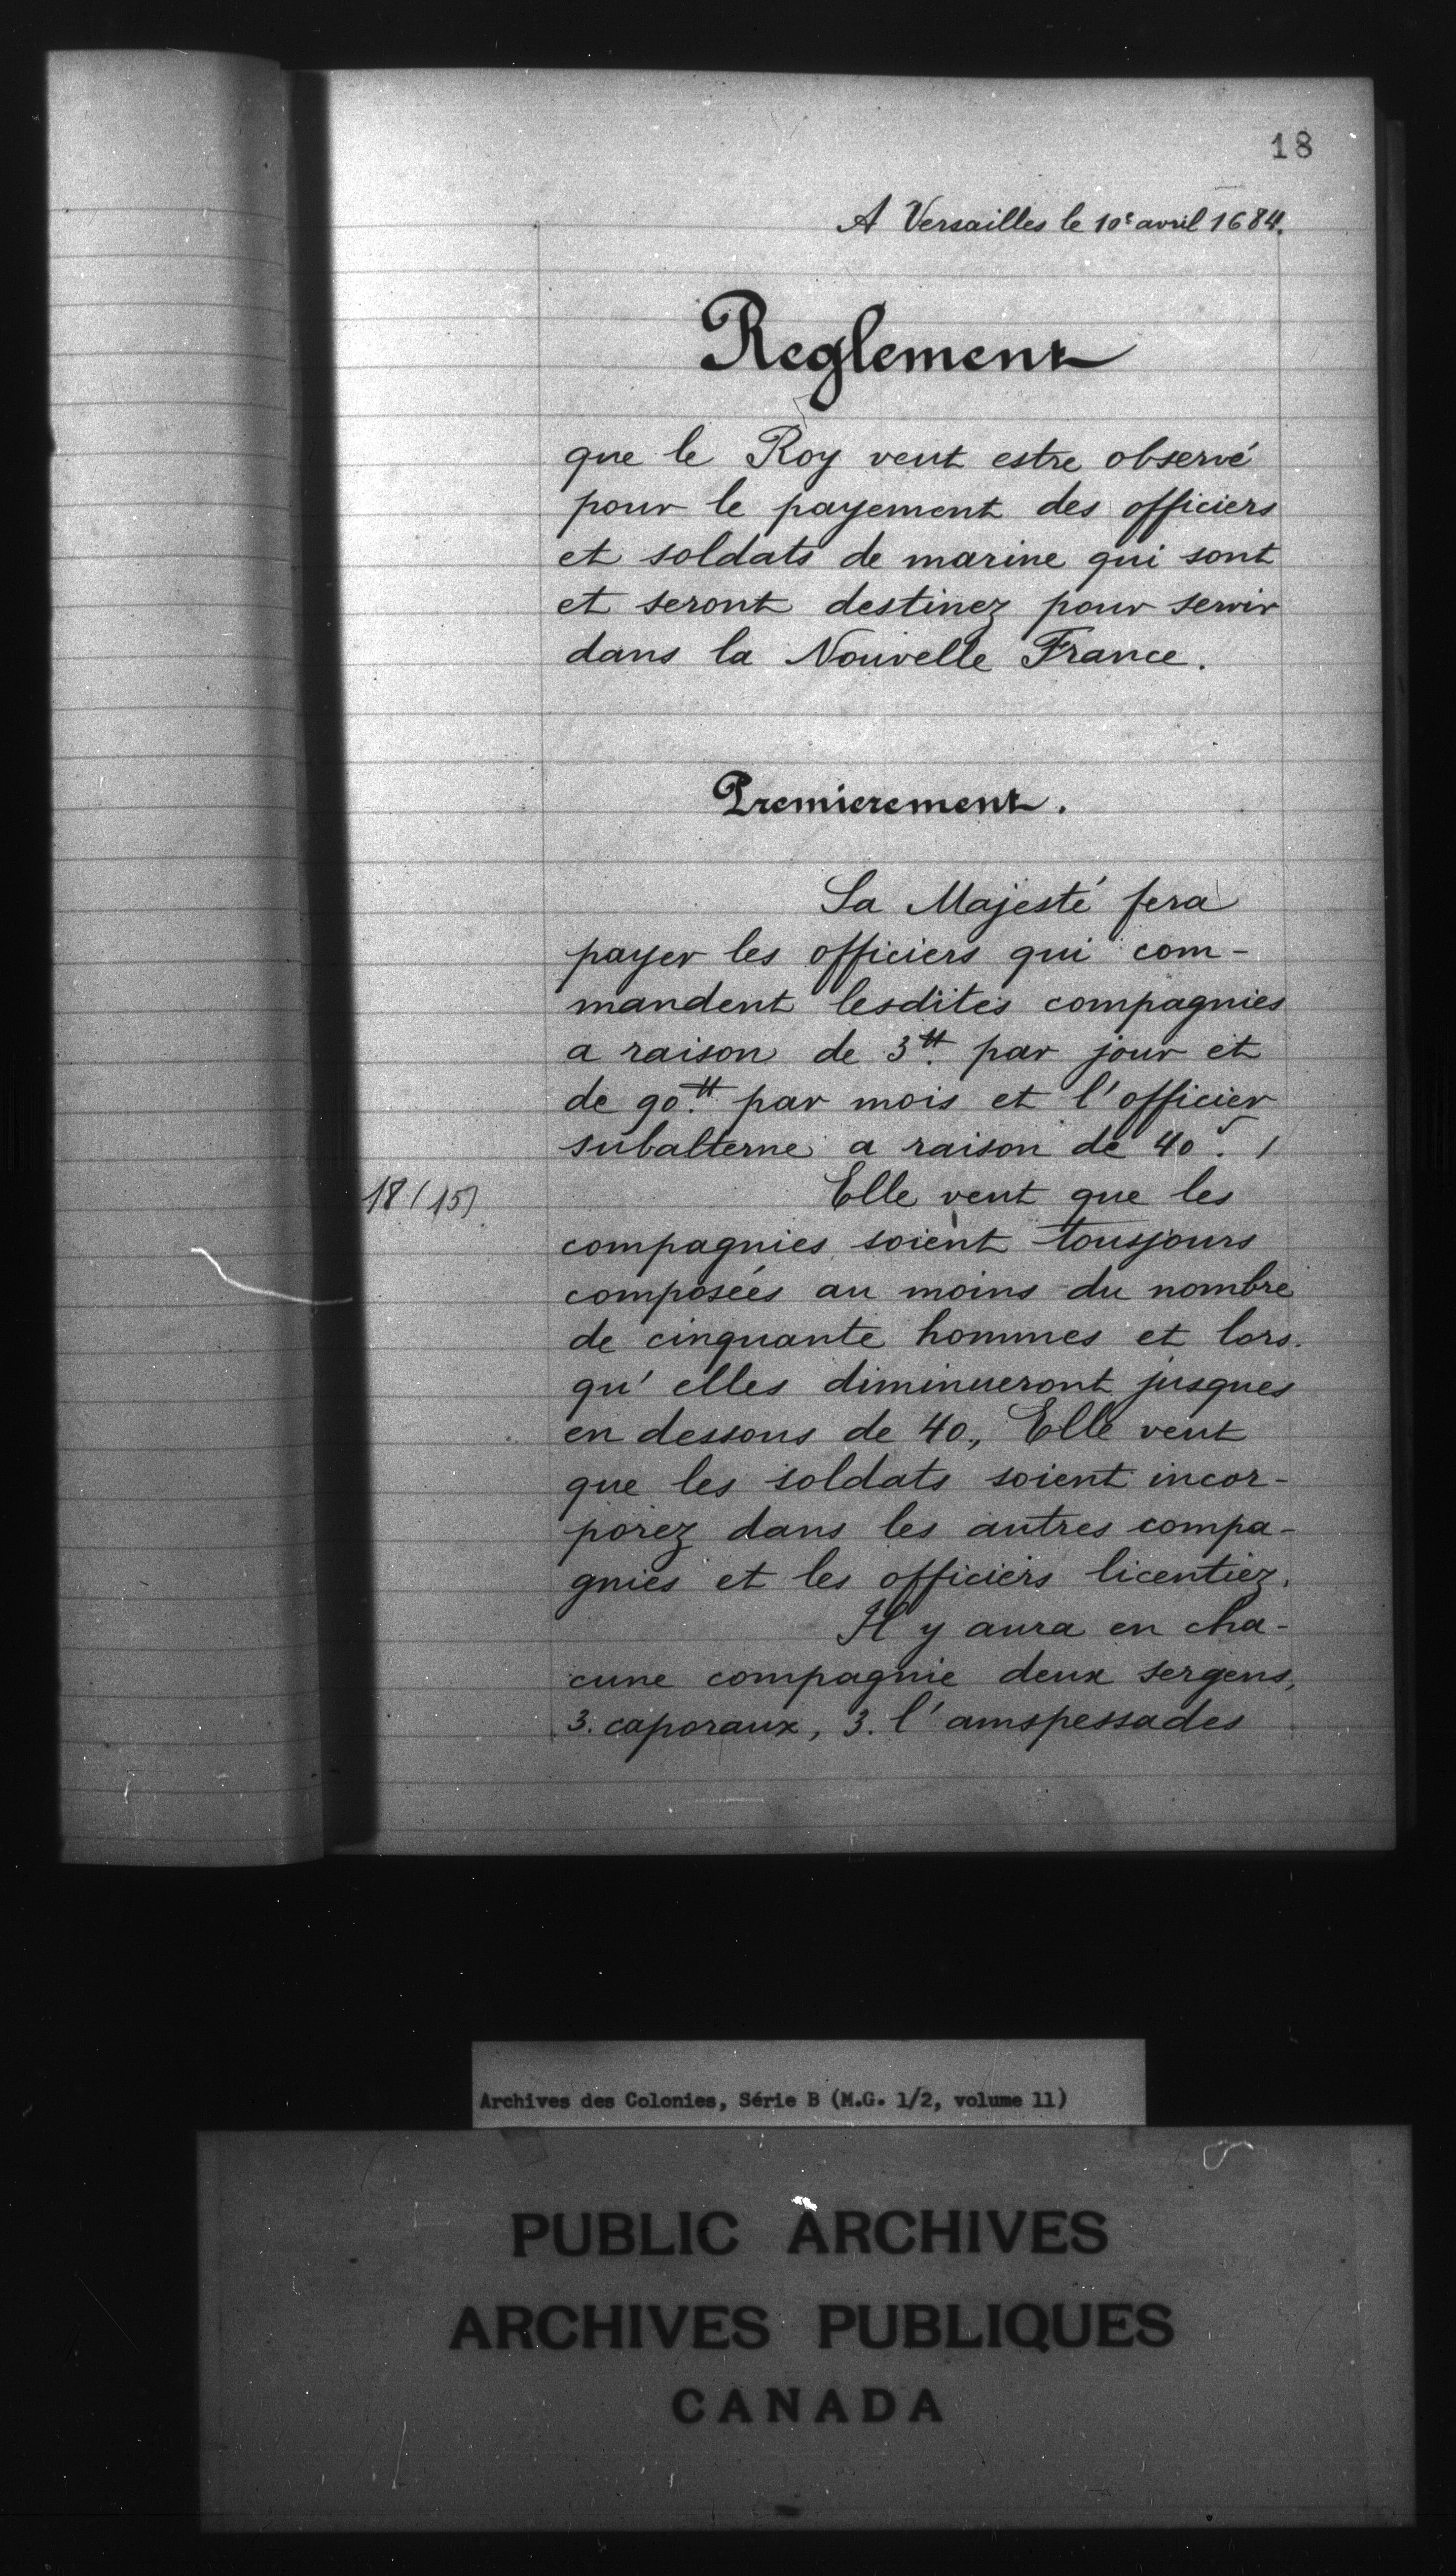 18
A Versailles le 10e avril 1684.
Reglement
que le Roy veut estre observé
pour le payement des officiers
et soldats de marine qui sont
et seront destinez pour servir
dans la Nouvelle France.
Premierement.
Sa Majesté fera
payer les officiers qui com-
mandent lesdites compagnies
a raison de 3tt. par jour et
de 90.tt par mois et l'officier
subalterne a raison de 40s. /
18 (15)
Elle veut que les
compagnies soient tousjours
composées au moins du nombre
de cinquante hommes et lors.
qu'elles diminueront jusques
en dessous de 40, Elle veut
que les soldats soient incor-
porez dans les autres compa-
gnies et les officiers licentiez.
Il y aura en cha-
cune compagnie deux sergens,
3. caporaux, 3. l'amspessades
Archives des Colonies, Série B (M.G. 1/2, volume 11)
PUBLIC ARCHIVES
ARCHIVES PUBLIQUES
CANADA